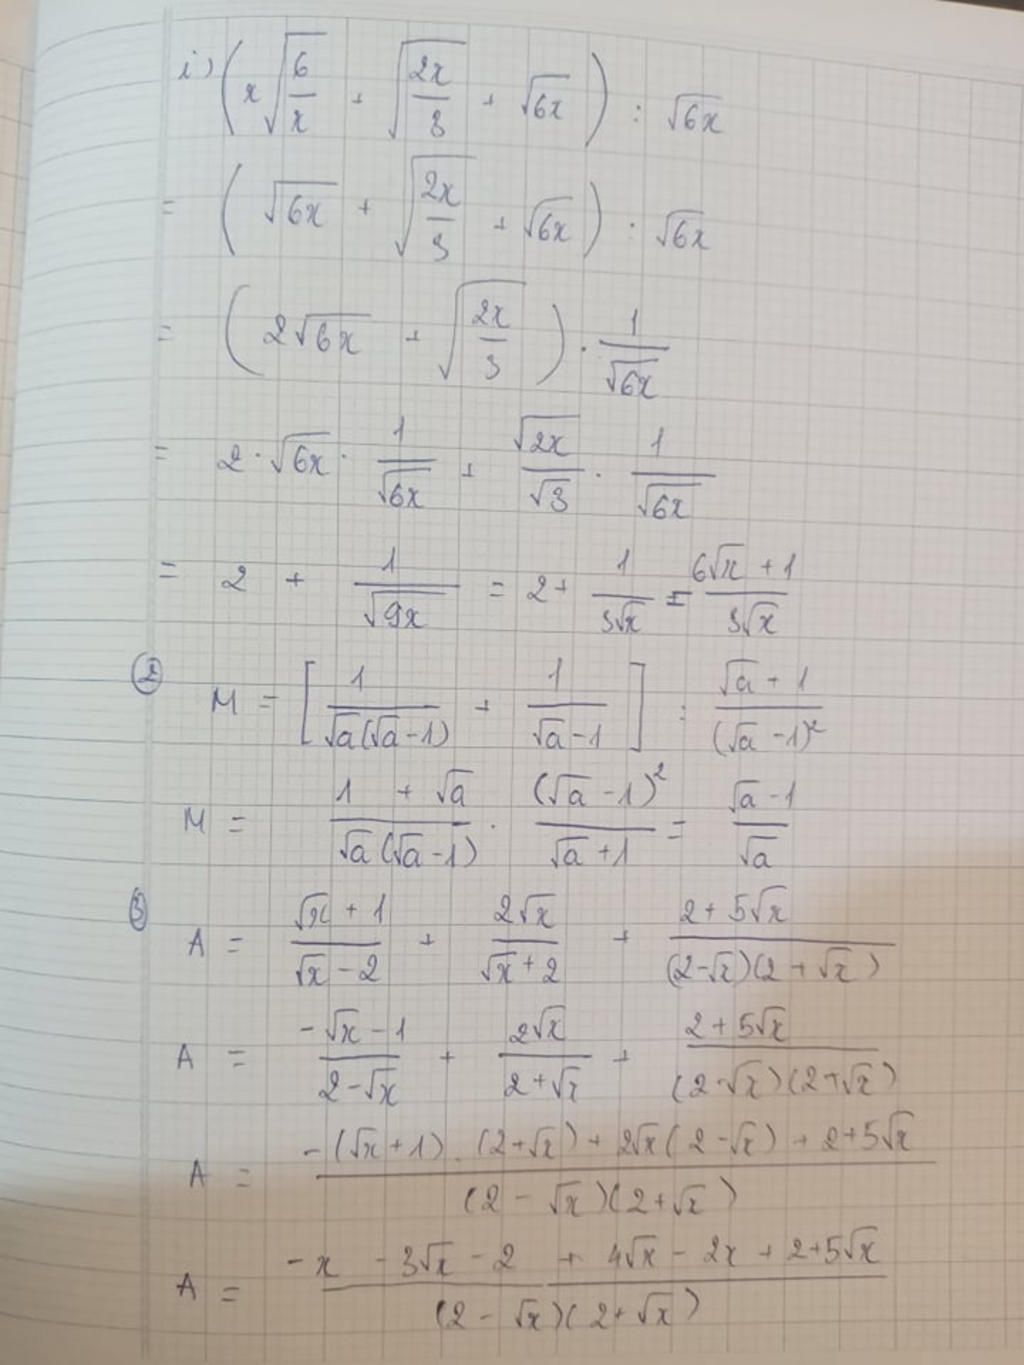 i) (x√(6/x) + √(2x/3) + √6x) : √6x
= (√6x + √(2x/3) + √6x) : √6x
= (2√6x + √(2x/3)) · 1/√6x
= 2 · √6x · 1/√6x + √2x/√3 · 1/√6x
= 2 + 1/√9x = 2 + 1/3√x = (6√x + 1)/3√x
② M = [1/(√a(√a-1)) + 1/(√a-1)] : (√a + 1)/(√a - 1)²
M = (1 + √a)/(√a(√a-1)) · (√a - 1)²/(√a + 1) = (√a - 1)/√a
③ A = (√x + 1)/(√x - 2) + 2√x/(√x + 2) + (2 + 5√x)/((2-√x)(2+√x))
A = (-√x - 1)/(2-√x) + 2√x/(2+√x) + (2 + 5√x)/((2-√x)(2+√x))
A = (-(√x+1).(2+√x) + 2√x(2-√x) + 2+5√x)/((2-√x)(2+√x))
A = (-x - 3√x - 2 + 4√x - 2x + 2+5√x)/((2-√x)(2+√x))